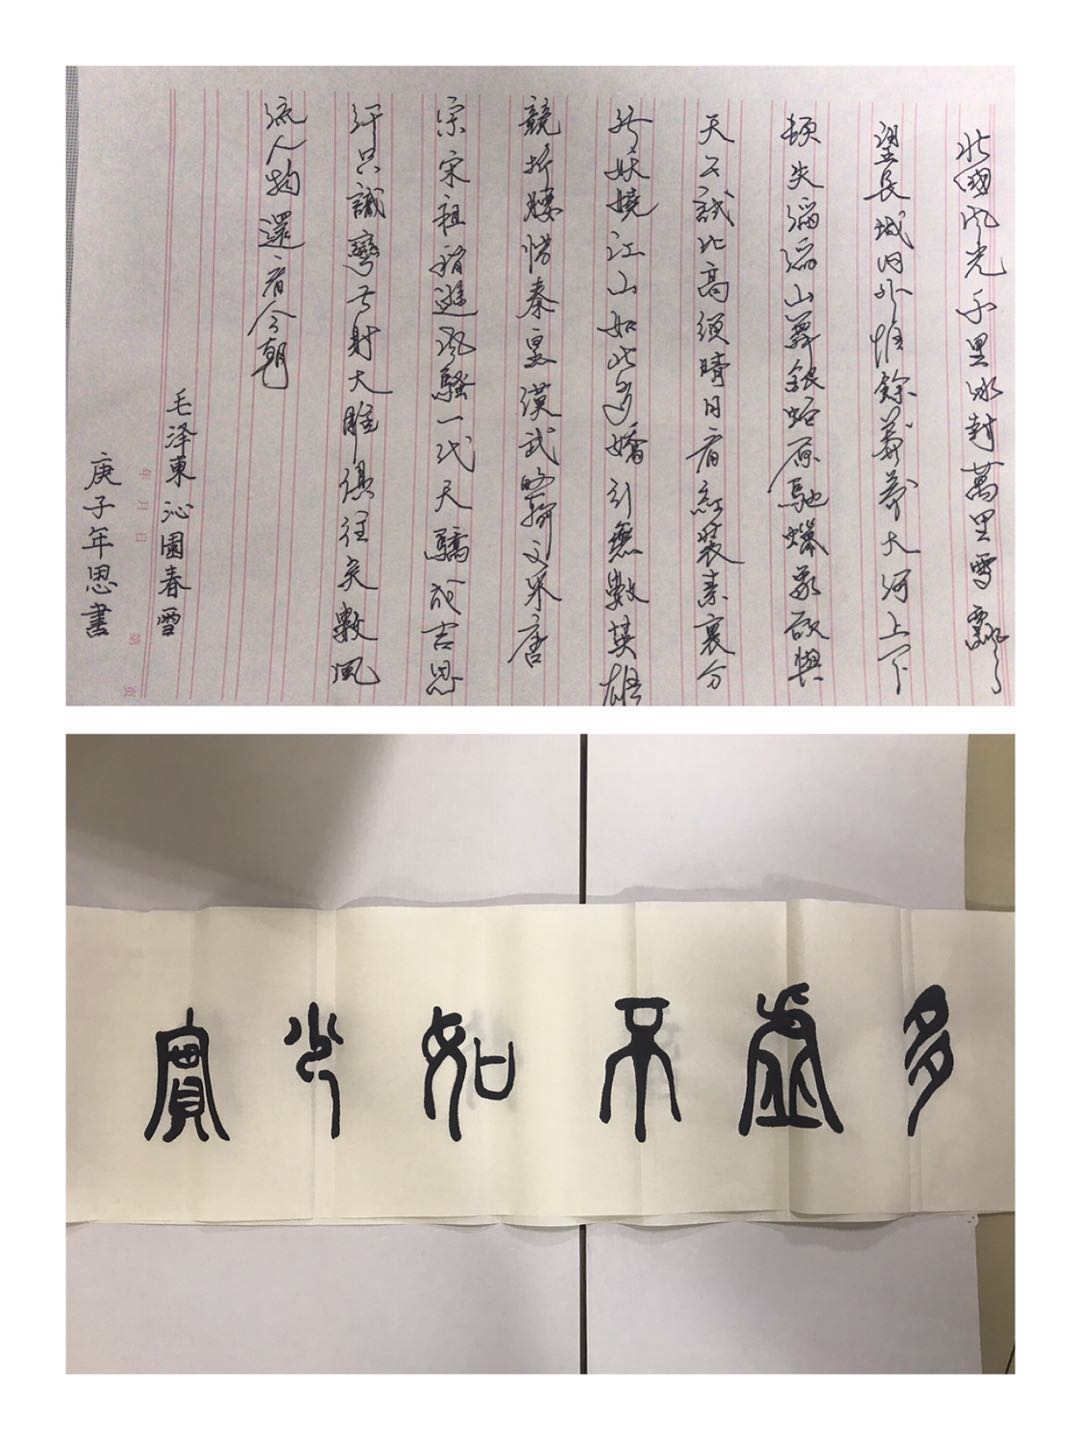 北國風光千里冰封萬里雪飄
望長城內外惟餘莽莽大河上下
頓失滔滔山舞銀蛇原馳蠟象欲與
天公試比高須晴日看紅裝素裹分
外妖嬈江山如此多嬌引無數英雄
競折腰惜秦皇漢武略輸文采唐
宗宋祖稍遜風騷一代天驕成吉思
汗只識彎弓射大雕俱往矣數風
流人物還看今朝
毛泽東沁園春雪
庚子年思書
年月日
第頁
多虛不如少實